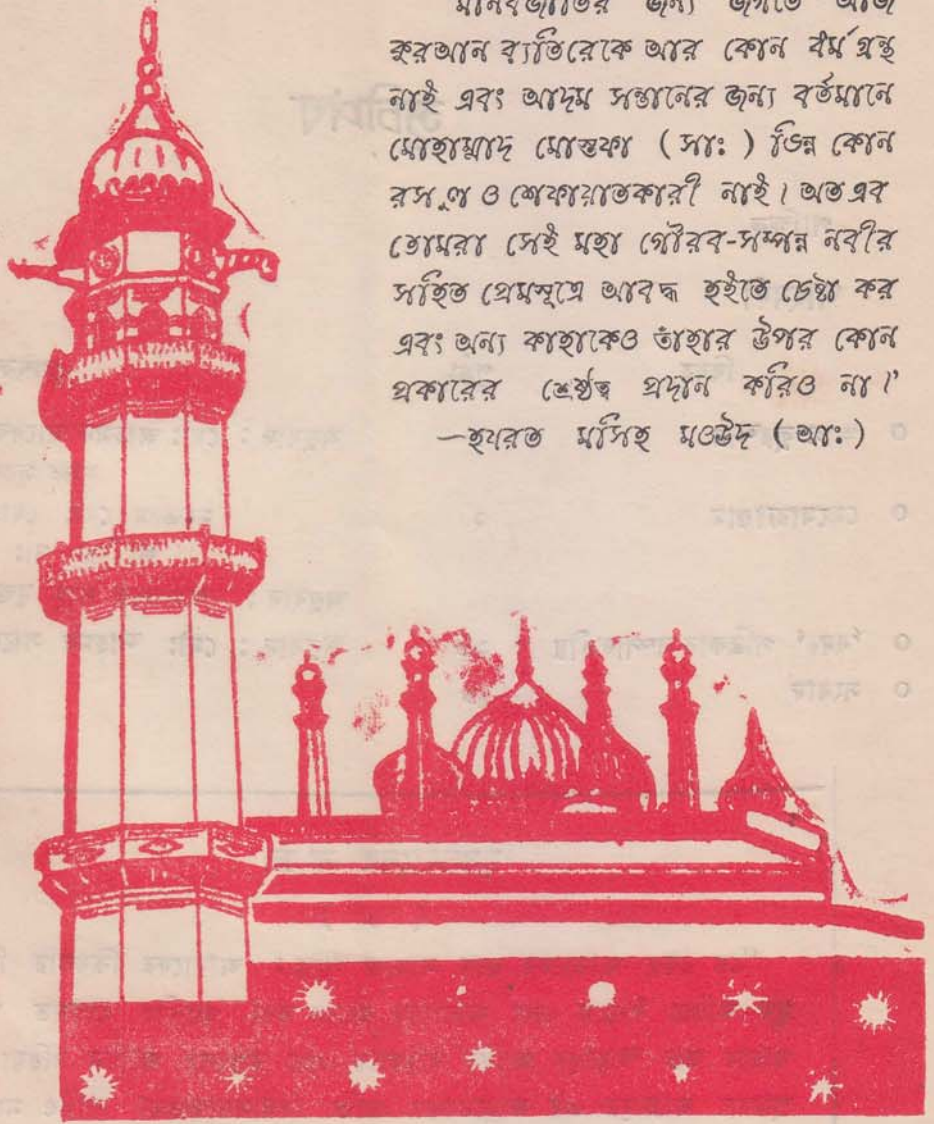 মানবজাতির জন্য জগতে আজ
কুরআন ব্যতিরেকে আর কোন ধর্ম গ্রন্থ
নাই এবং আদম সন্তানের জন্য বর্তমানে
মোহাম্মাদ মোস্তফা ( সাঃ ) ভিন্ন কোন
রসূল ও শেফায়াতকারী নাই। অতএব
তোমরা সেই মহা গৌরব-সম্পন্ন নবীর
সহিত প্রেমসূত্রে আবদ্ধ হইতে চেষ্টা কর
এবং অন্য কাহাকেও তাঁহার উপর কোন
প্রকারের শ্রেষ্ঠত্ব প্রদান করিও না।’
—হযরত মসিহ মওউদ ( আঃ )